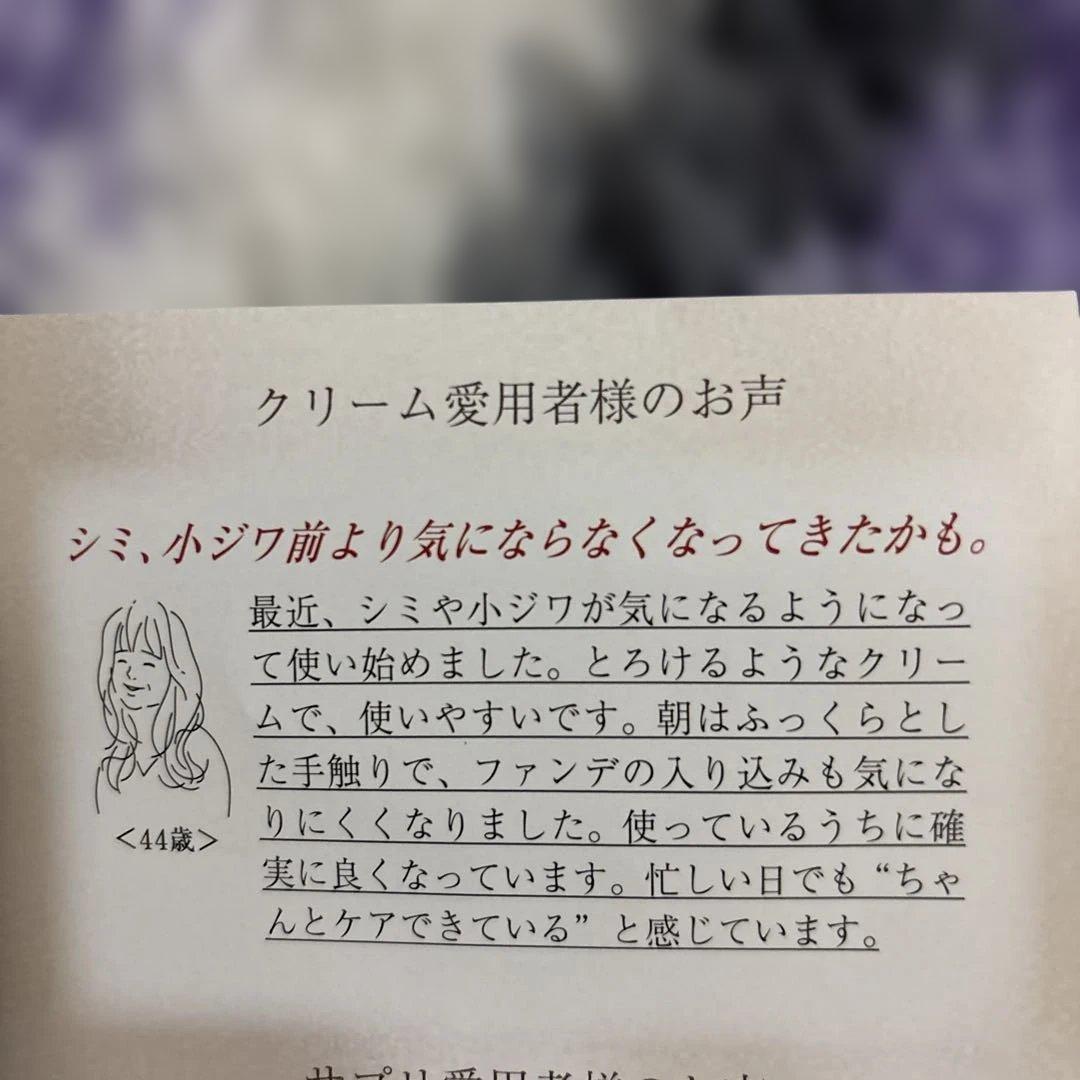 クリーム愛用者様のお声
シミ、小ジワ前より気にならなくなってきたかも。
最近、シミや小ジワが気になるようになっ
て使い始めました。とろけるようなクリー
ムで、使いやすいです。朝はふっくらとし
た手触りで、ファンデの入り込みも気にな
りにくくなりました。使っているうちに確
実に良くなっています。忙しい日でも“ちゃ
んとケアできている”と感じています。
＜44歳＞
サプリ愛用者様のお声